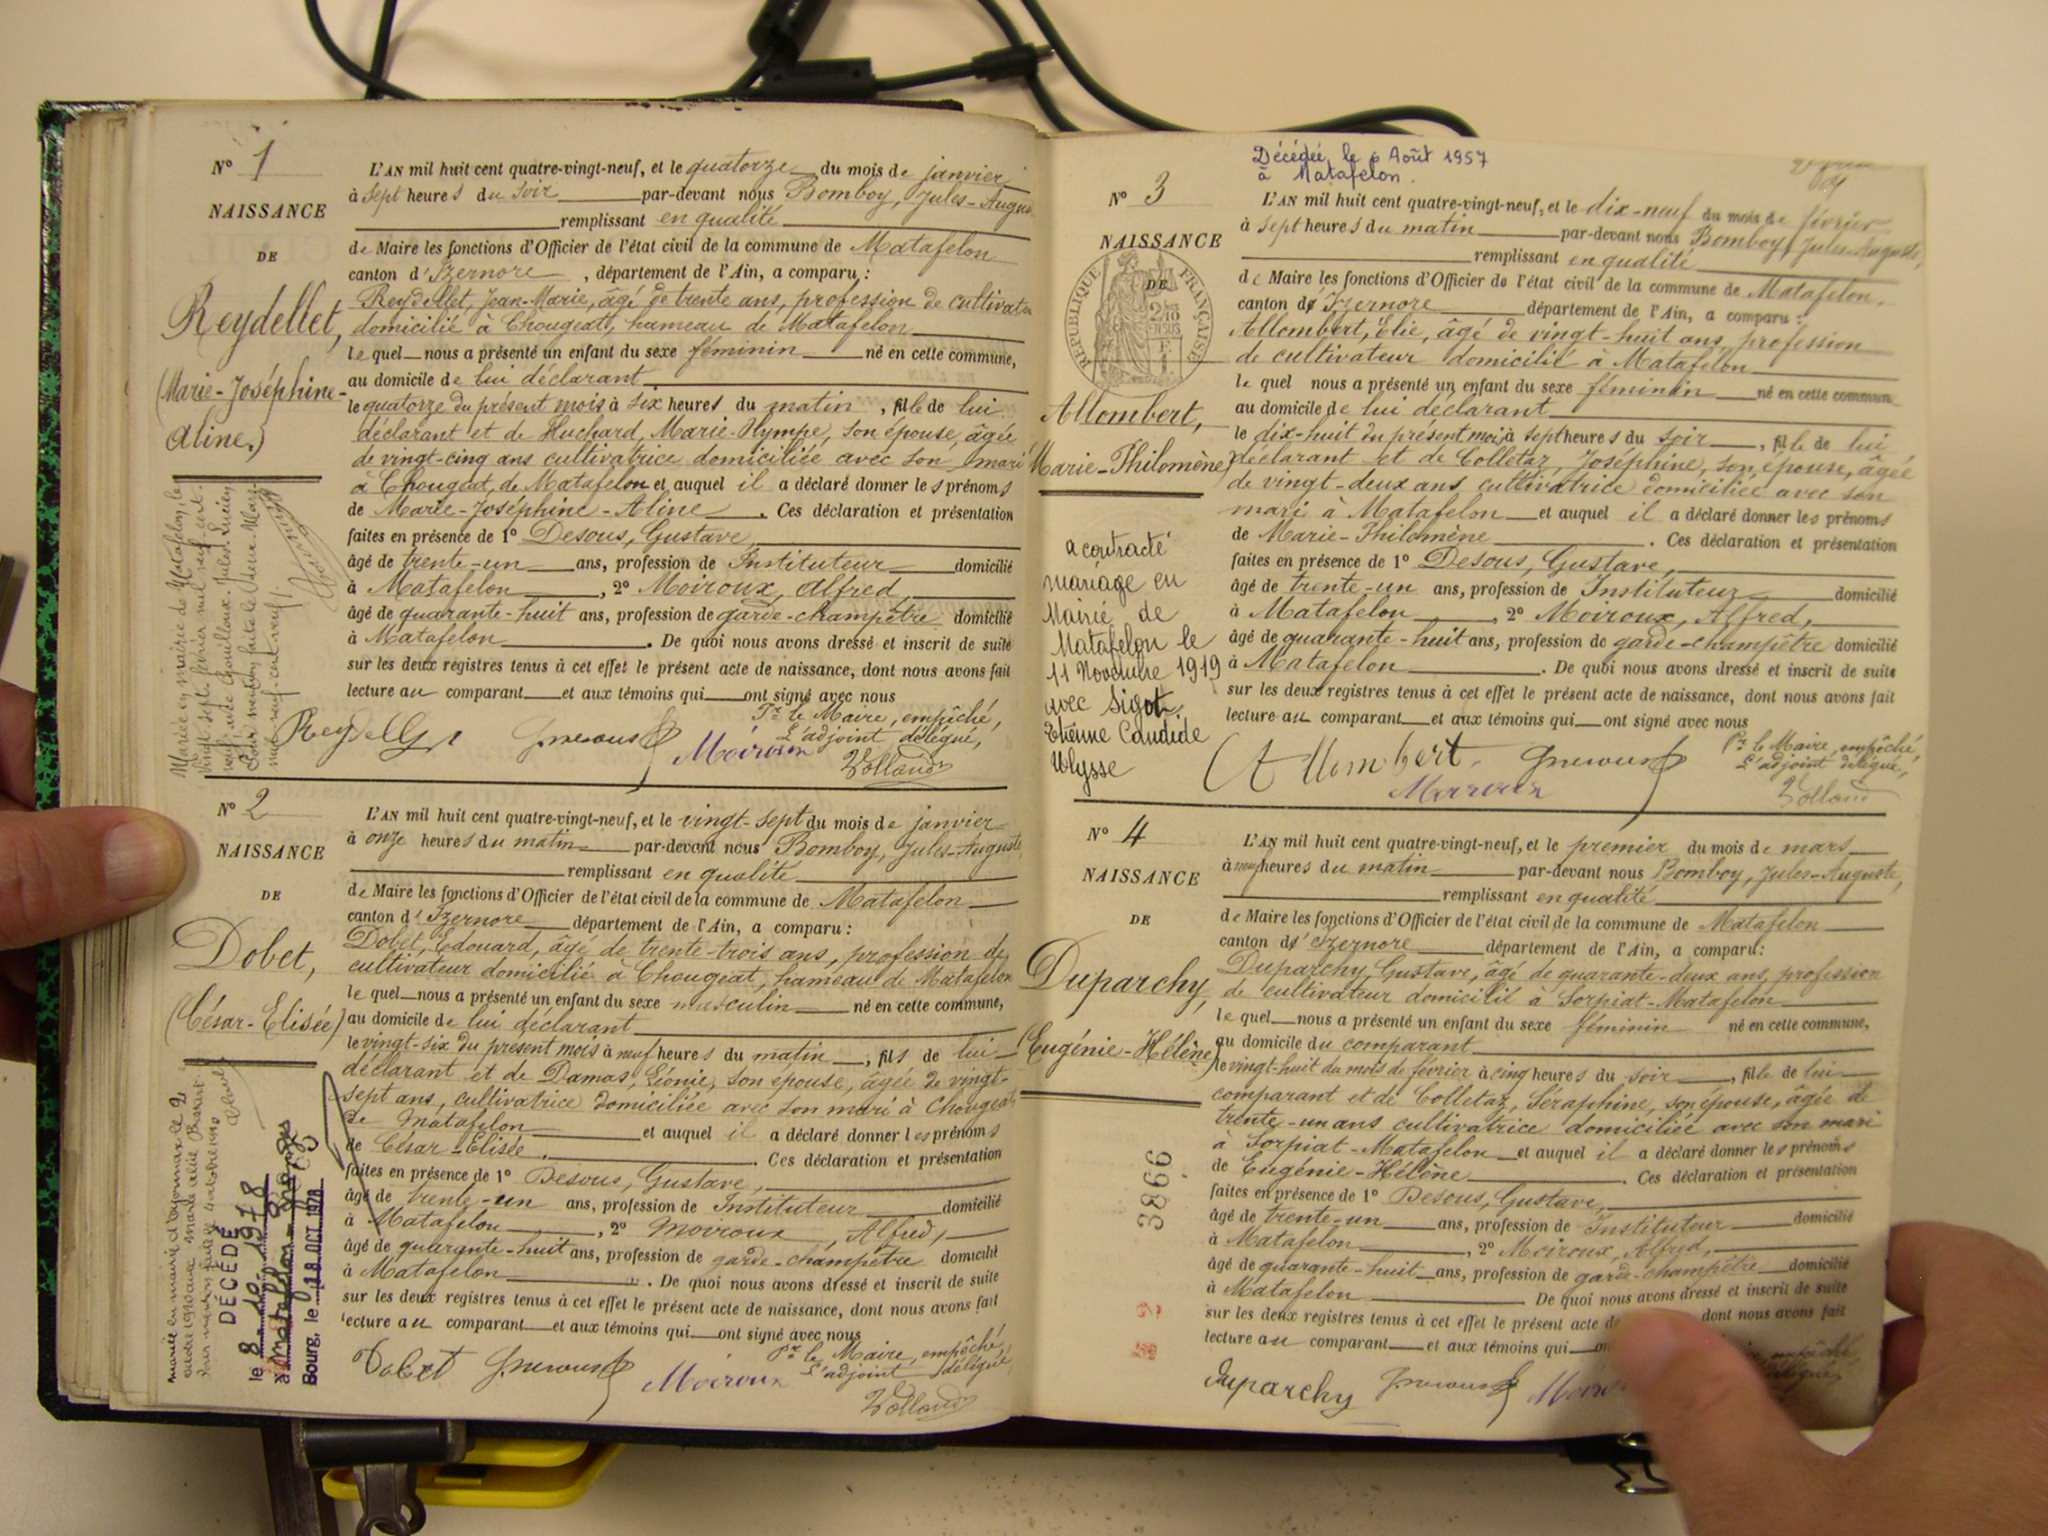 N° 1
NAISSANCE
DE
Reydellet,
(Marie-Joséphine-
Aline.)
L'AN mil huit cent quatre-vingt-neuf, et le quatorze du mois de janvier
à sept heures du soir par-devant nous Bomboy, Jules-Augus
remplissant en qualité
de Maire les fonctions d'Officier de l'état civil de la commune de Matafelon
canton d'Izernore, département de l'Ain, a comparu :
Reydellet, Jean-Marie, âgé de trente ans, profession de cultivateur
domicilié à Chougeat, hameau de Matafelon
lequel nous a présenté un enfant du sexe féminin né en cette commune,
au domicile de lui déclarant
le quatorze du présent mois à six heures du matin, fille de lui
déclarant et de Huchard, Marie-Olympe, son épouse, âgée
de vingt-cinq ans cultivatrice domiciliée avec son mari
à Chougeat, de Matafelon et auquel il a déclaré donner les prénoms
de Marie-Joséphine-Aline. Ces déclaration et présentation
faites en présence de 1° Desous, Gustave,
âgé de trente-un ans, profession de Instituteur domicilié
à Matafelon, 2° Moiroux, Alfred,
âgé de quarante-huit ans, profession de garde-champêtre domicilié
à Matafelon. De quoi nous avons dressé et inscrit de suite
sur les deux registres tenus à cet effet le présent acte de naissance, dont nous avons fait
lecture au comparant et aux témoins qui ont signé avec nous
Pr le Maire, empêché,
L'adjoint délégué,
Moiroux
Volland
Mariée en mairie de Matafelon, le
vingt sept février mil neuf cent
N° 2
NAISSANCE
DE
Dobet,
(César-Elisée)
L'AN mil huit cent quatre-vingt-neuf, et le vingt-sept du mois de janvier
à onze heures du matin par-devant nous Bomboy, Jules-Auguste
remplissant en qualité
de Maire les fonctions d'Officier de l'état civil de la commune de Matafelon
canton d'Izernore département de l'Ain, a comparu :
Dobet, Edouard, âgé de trente-trois ans, profession de
cultivateur domicilié à Chougeat, hameau de Matafelon
lequel nous a présenté un enfant du sexe masculin né en cette commune,
au domicile de lui déclarant
le vingt-six du présent mois à neuf heures du matin, fils de lui
déclarant et de Damas, Léonie, son épouse, âgée de vingt-
sept ans, cultivatrice domiciliée avec son mari à Chougeat
de Matafelon et auquel il a déclaré donner les prénoms
de César-Elisée. Ces déclaration et présentation
faites en présence de 1° Desous, Gustave,
âgé de trente-un ans, profession de Instituteur domicilié
à Matafelon, 2° Moiroux, Alfred,
âgé de quarante-huit ans, profession de garde-champêtre domicilié
à Matafelon. De quoi nous avons dressé et inscrit de suite
sur les deux registres tenus à cet effet le présent acte de naissance, dont nous avons fait
lecture au comparant et aux témoins qui ont signé avec nous
Pr le Maire, empêché,
L'adjoint délégué,
Dobet
Moiroux
Volland
DÉCÉDÉ
le 8.10.1978
à Matafelon-Granges
Bourg, le 18 OCT. 1978
Décédée le 6 Août 1957
à Matafelon.
N° 3
NAISSANCE
DE
RÉPUBLIQUE FRANÇAISE
Allombert,
(Marie-Philomène)
L'AN mil huit cent quatre-vingt-neuf, et le dix-neuf du mois de février
à sept heures du matin par-devant nous Bomboy, Jules-Auguste,
remplissant en qualité
de Maire les fonctions d'Officier de l'état civil de la commune de Matafelon.
canton d'Izernore département de l'Ain, a comparu :
Allombert, Elie, âgé de vingt-huit ans, profession
de cultivateur domicilié à Matafelon
lequel nous a présenté un enfant du sexe féminin né en cette commune
au domicile de lui déclarant
le dix-huit du présent mois à sept heures du soir, fille de lui
déclarant et de Colletaz, Joséphine, son épouse, âgée
de vingt-deux ans cultivatrice domiciliée avec son
mari à Matafelon et auquel il a déclaré donner les prénoms
de Marie-Philomène. Ces déclaration et présentation
faites en présence de 1° Desous, Gustave,
âgé de trente-un ans, profession de Instituteur domicilié
à Matafelon, 2° Moiroux, Alfred,
âgé de quarante-huit ans, profession de garde-champêtre domicilié
à Matafelon. De quoi nous avons dressé et inscrit de suite
sur les deux registres tenus à cet effet le présent acte de naissance, dont nous avons fait
lecture au comparant et aux témoins qui ont signé avec nous
Pr le Maire, empêché,
L'adjoint délégué,
Allombert.
Moiroux
Volland
a contracté
mariage en
Mairie de
Matafelon le
11 Novembre 1919
avec Sigot,
Etienne Candide
Ulysse
N° 4
NAISSANCE
DE
Duparchy,
(Eugénie-Hélène)
L'AN mil huit cent quatre-vingt-neuf, et le premier du mois de mars
à neuf heures du matin par-devant nous Bomboy, Jules-Auguste,
remplissant en qualité
de Maire les fonctions d'Officier de l'état civil de la commune de Matafelon
canton d'Izernore département de l'Ain, a comparu :
Duparchy, Gustave, âgé de quarante-deux ans, profession
de cultivateur domicilié à Sorpiat-Matafelon
lequel nous a présenté un enfant du sexe féminin né en cette commune,
au domicile du comparant
le vingt-huit du mois de février à cinq heures du soir, fille de lui
comparant et de Colletaz, Séraphine, son épouse, âgée de
trente-un ans cultivatrice domiciliée avec son mari
à Sorpiat-Matafelon et auquel il a déclaré donner les prénoms
de Eugénie-Hélène. Ces déclaration et présentation
faites en présence de 1° Desous, Gustave,
âgé de trente-un ans, profession de Instituteur domicilié
à Matafelon, 2° Moiroux, Alfred,
âgé de quarante-huit ans, profession de garde-champêtre domicilié
à Matafelon De quoi nous avons dressé et inscrit de suite
sur les deux registres tenus à cet effet le présent acte dont nous avons fait
lecture au comparant et aux témoins qui
Duparchy
3866